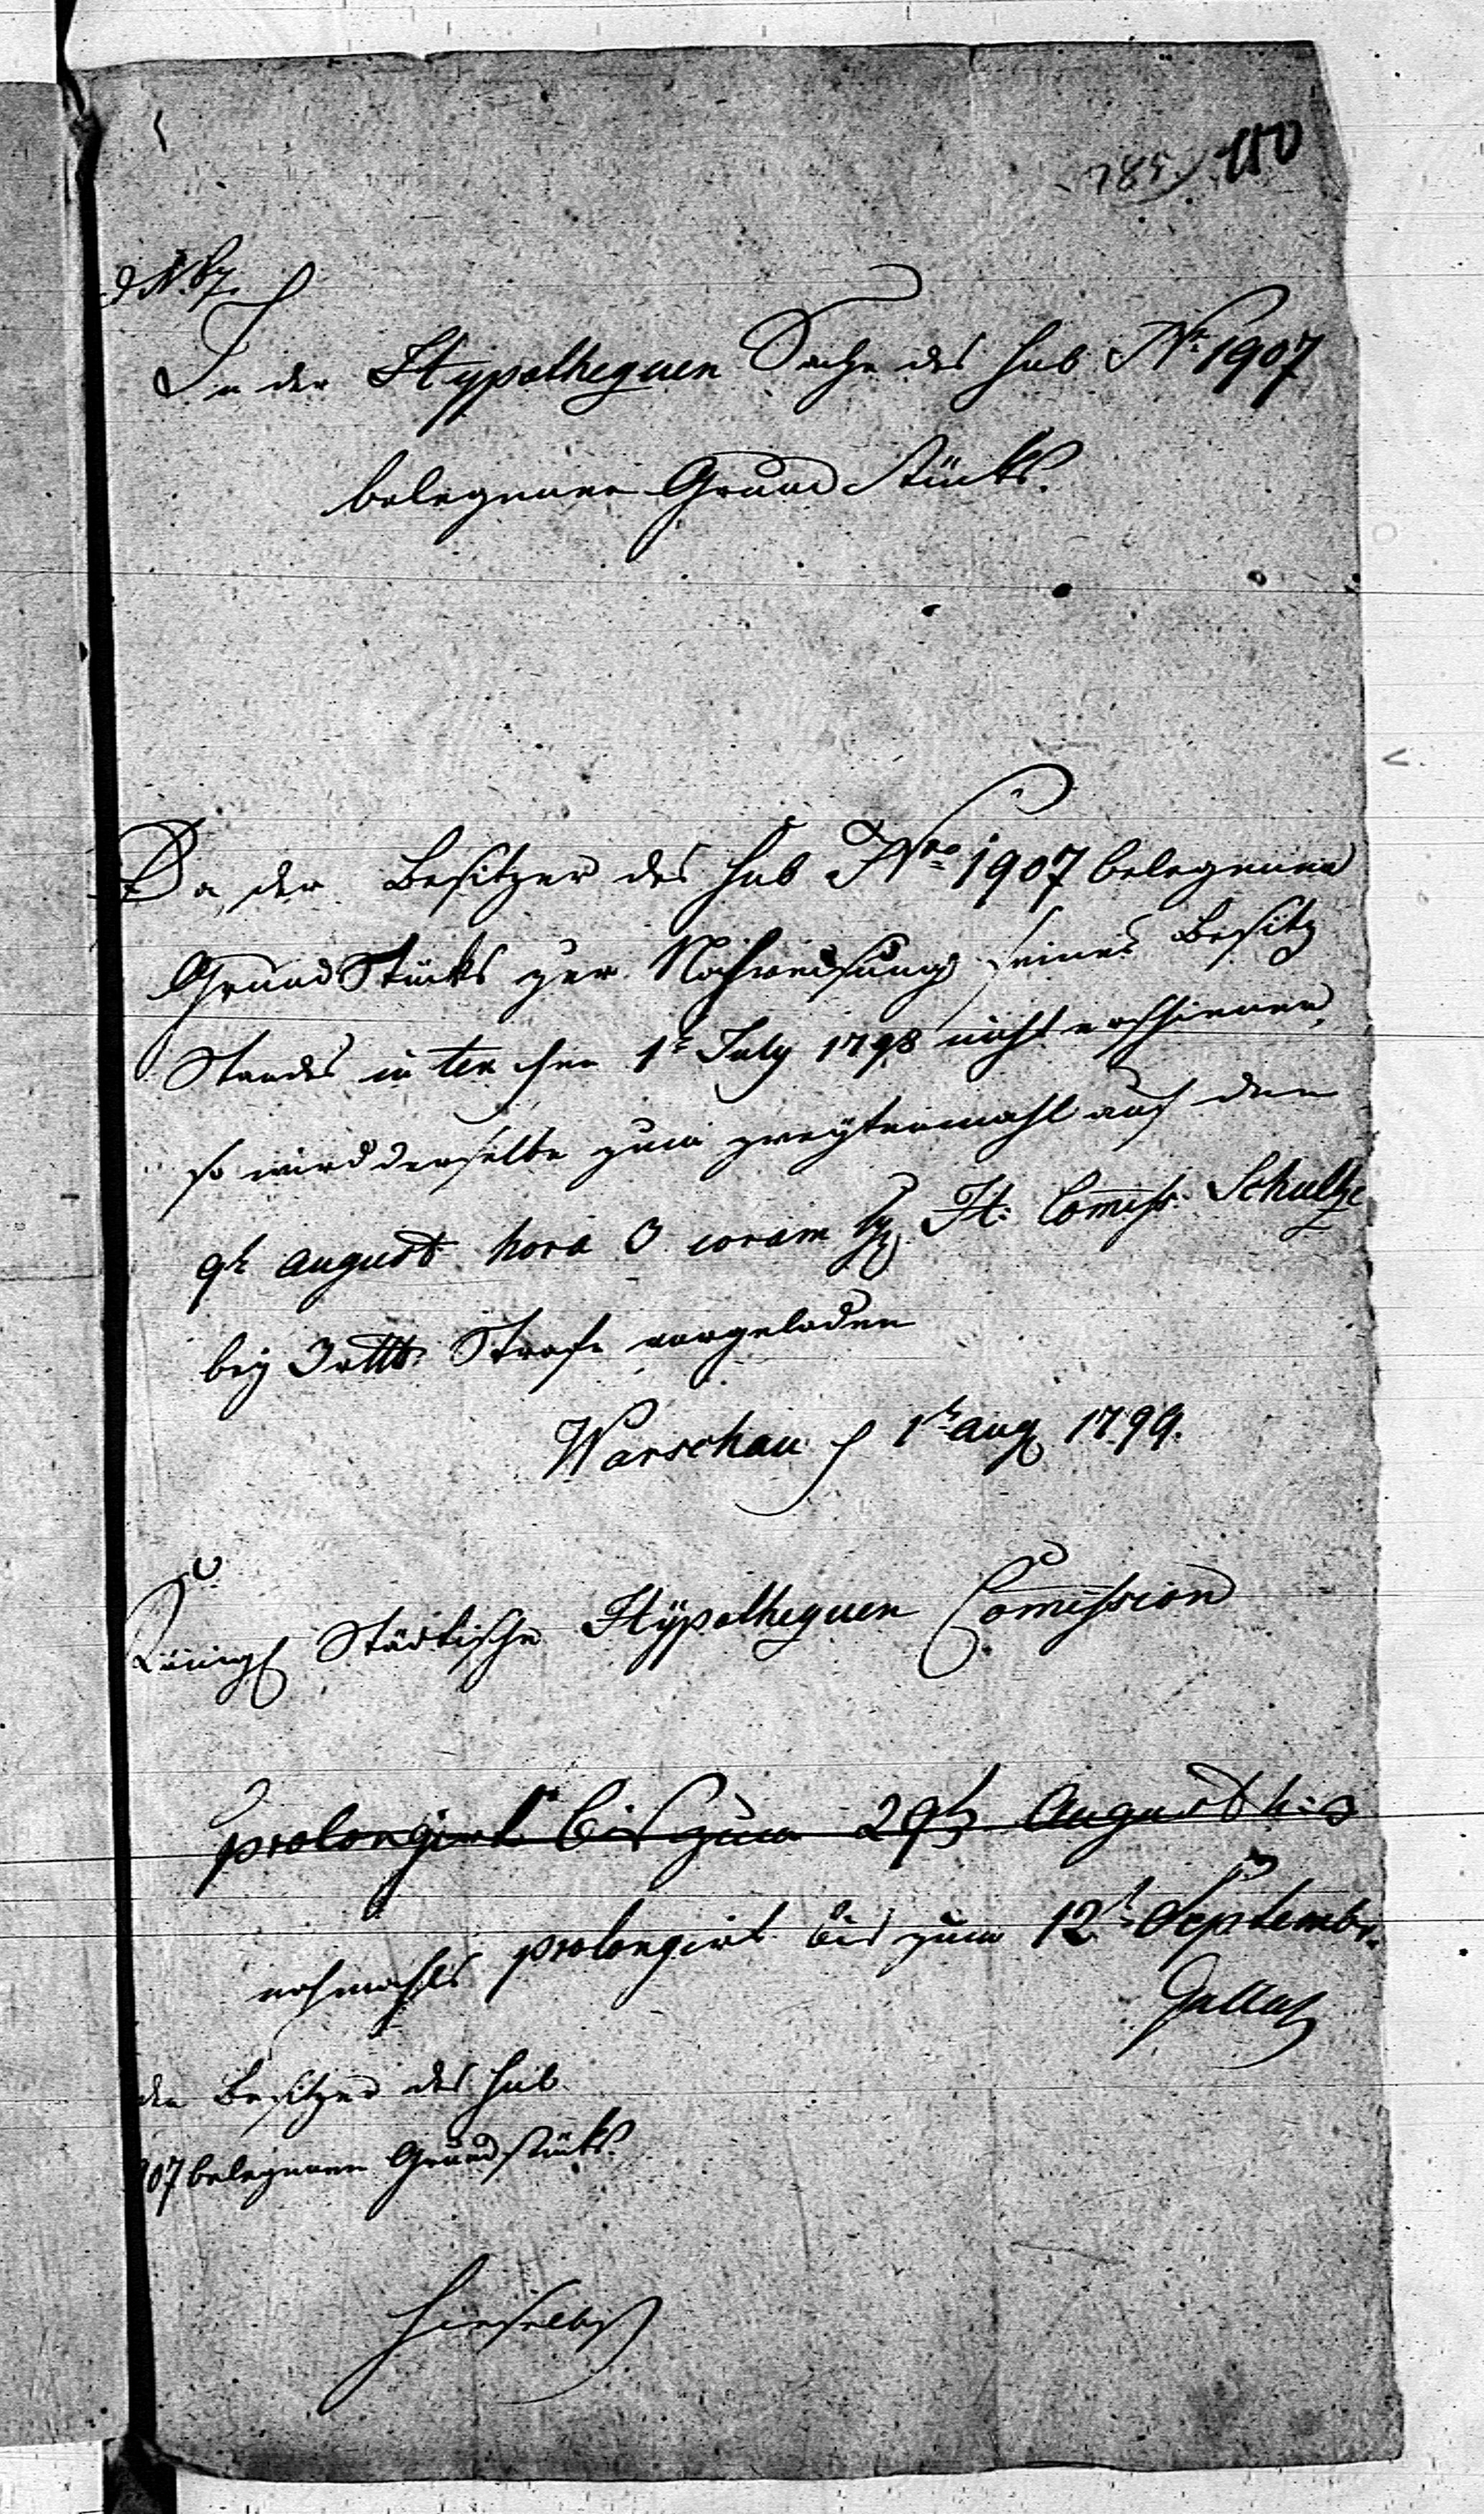 785. 110
In der Hypothequen Sache des sub Nr. 1907
belegenen Grund Stücks.
Da der Besitzer des sub Nro 1907 belegenen
Grund Stücks zur Nachweisung seines Besitz
Standes in 1t July 1798 nicht erschienen,
so wird derselbe zum zweytenmahl auf den
9t August hora 3 coram H: Comiss: Schultze
bey 3 rtlr. Strafe vorgeladen
Warschau d 1t Aug 1799.
Königl Städtische Hypothequen Comission
prolongirt bis zum 29t August h: 3
nochmahls prolongirt bis zum 12t Septembr.
den Besitzer des sub
907 belegenen Grundstücks.
hieselbst